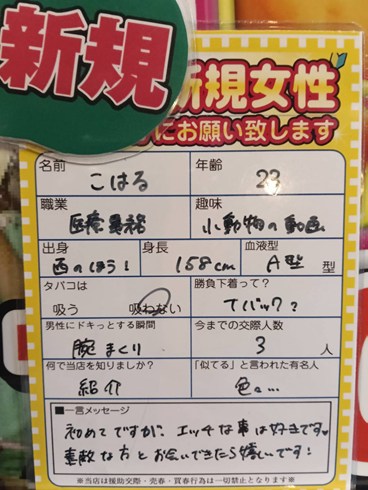 新規
新規女性
にお願い致します
名前 こはる 年齢 23
職業 医療事務 趣味 小動物の動画
出身 西のほう! 身長 158cm 血液型 A型 型
タバコは 吸う 吸わない 勝負下着って? Tバック?
男性にドキっとする瞬間 腕まくり 今までの交際人数 3 人
何で当店を知りましたか? 紹介 「似てる」と言われた有名人 色々…
■一言メッセージ
初めてですが、エッチな事は好きです♥
素敵な方とお会いできたら嬉しいです!
※当店は援助交際・売春・買春行為は一切禁止となります※